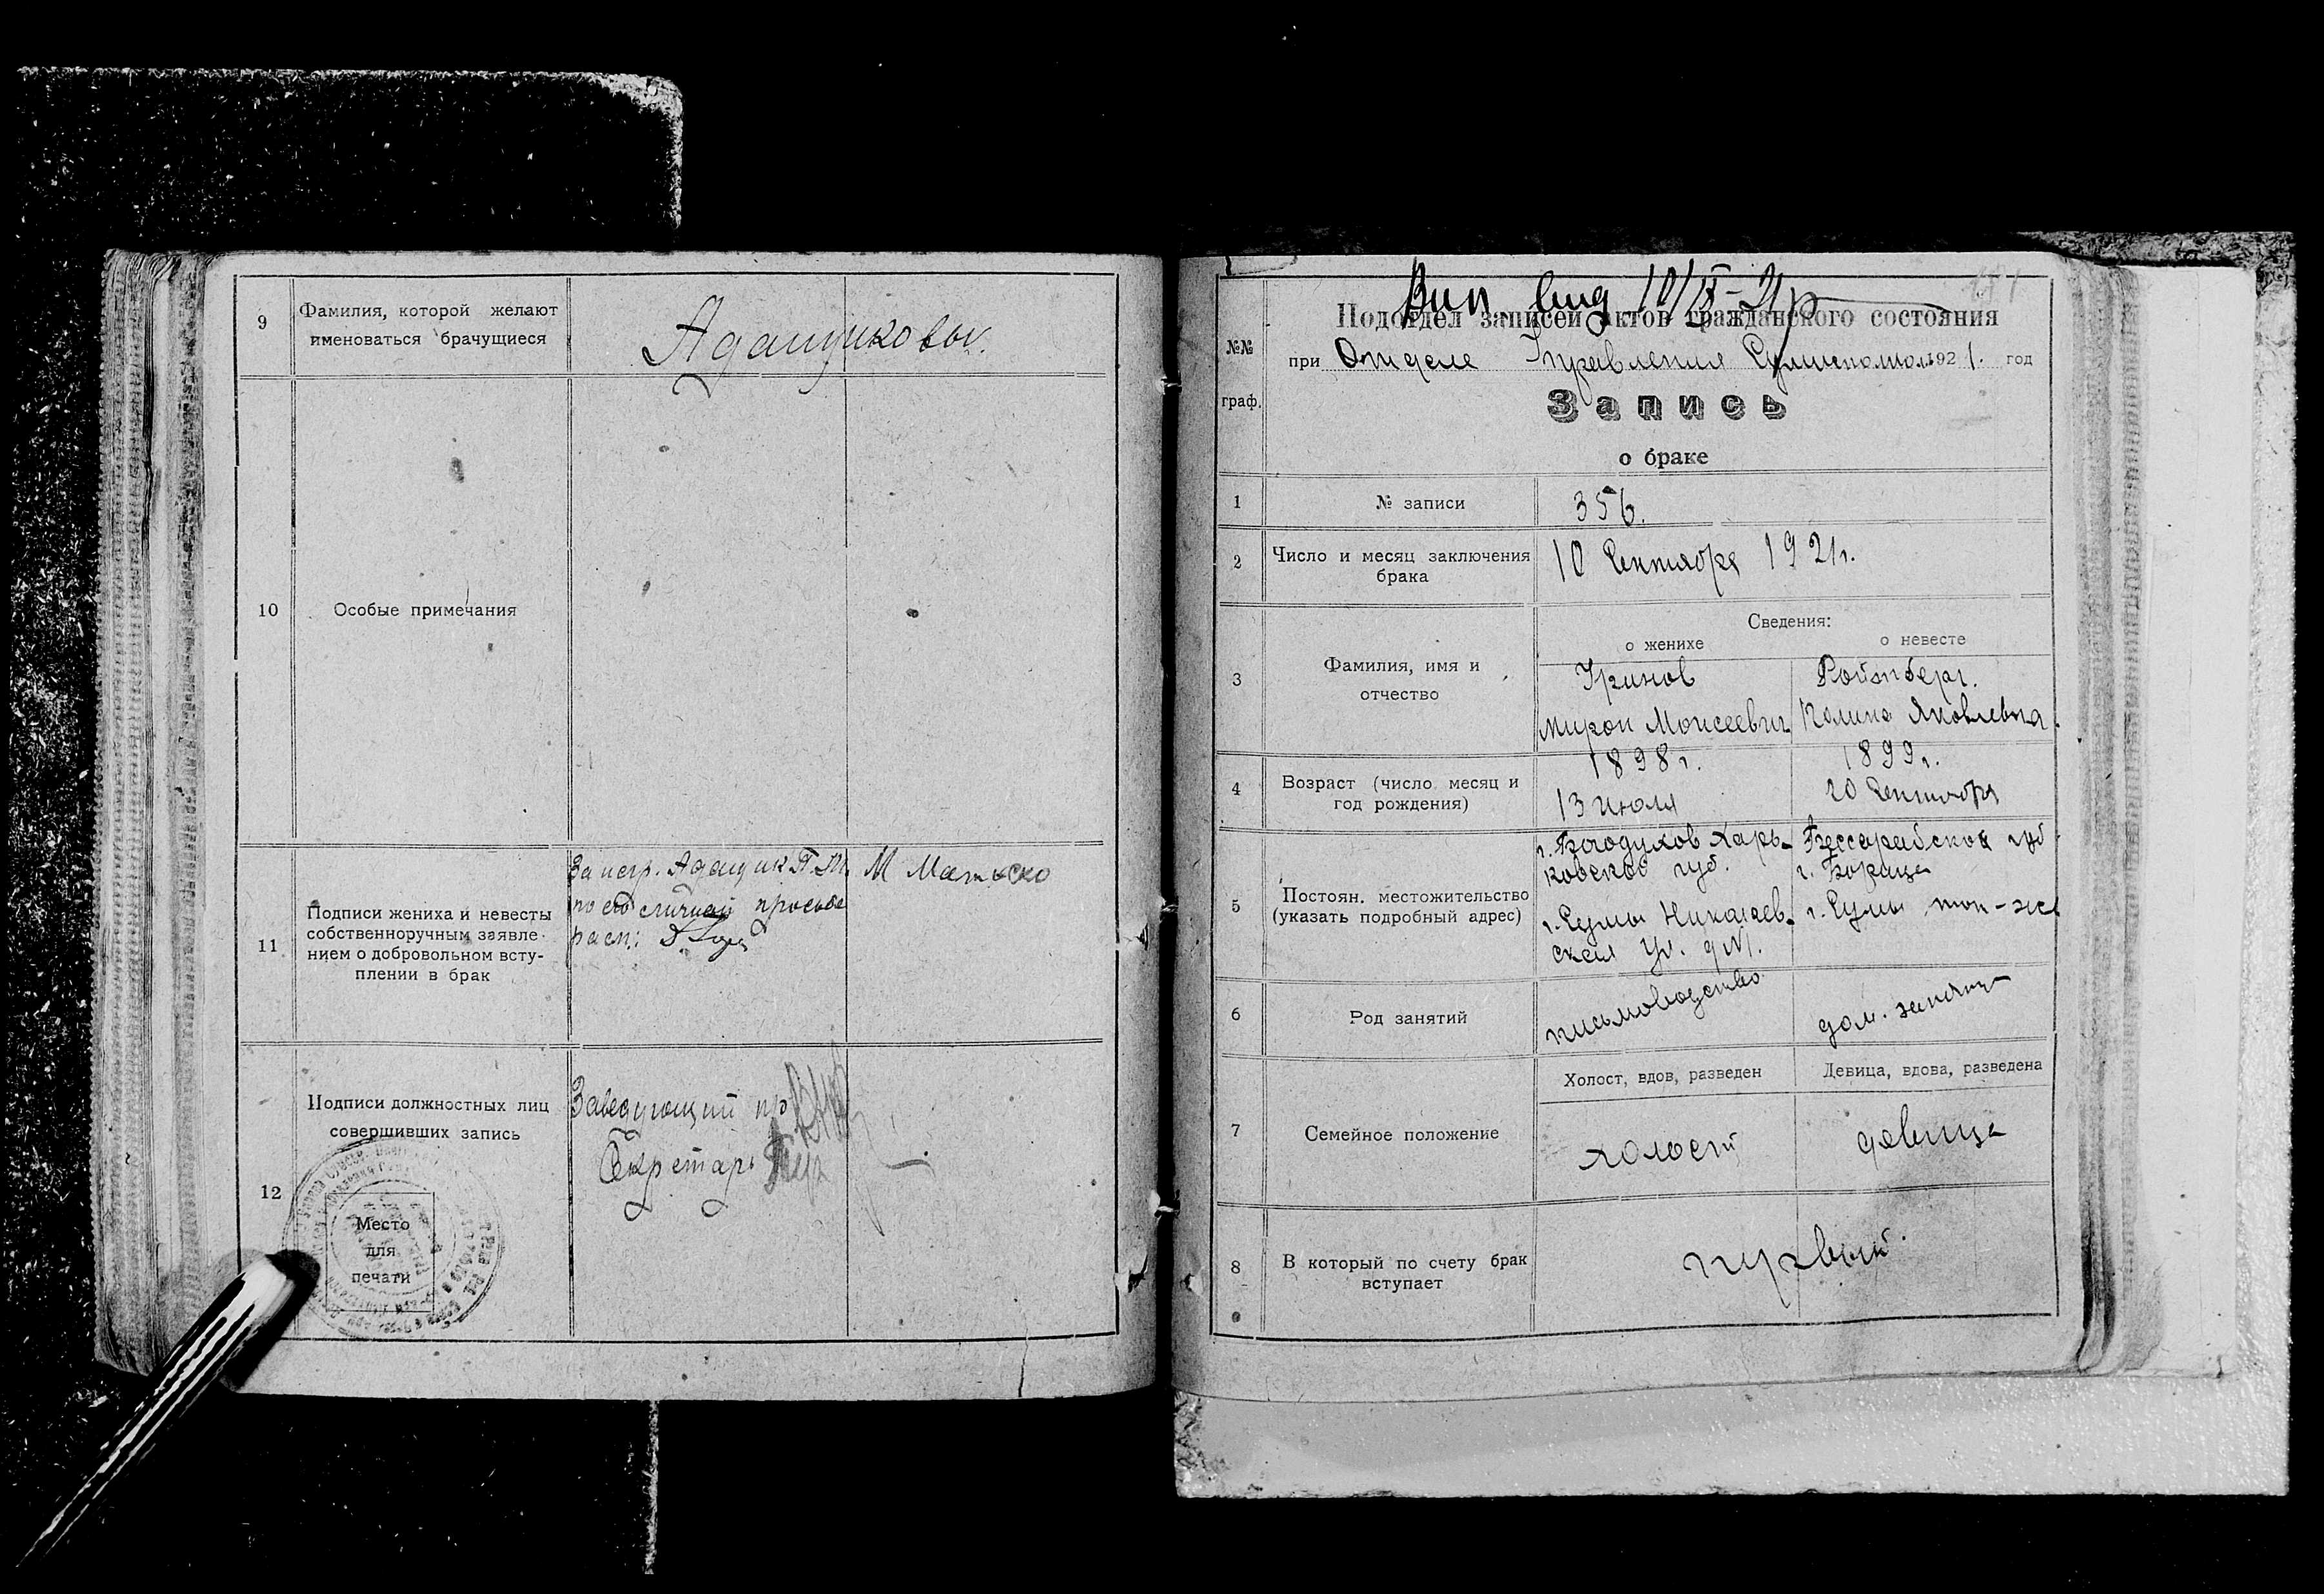 9
Фамилия, которой желают
именоваться брачущиеся
Адащиковы.
10
Особые примечания
11
Подписи жениха и невесты
собственноручным заявле-
нием о добровольном всту-
плении в брак
За негр. Адащик П. М.
по его личной просьбе
расп:
М
12
Подписи должностных лиц
совершивших запись
Заведующий
Секретарь
Место
для
печати
Вып. вид 10/IX-21 г
№№
граф.
Подотдел записей актов гражданского состояния
при Отделе Управления 1921. год
Запись
о браке
1
№ записи
356.
2
Число и месяц заключения
брака
10 Сентября 1921г.
3
Фамилия, имя и
отчество
Сведения:
о женихе
о невесте
Гринов
Мирон Моисеевич
Ройтберг.
Полина Яковлевна.
4
Возраст (число месяц и
год рождения)
1898г.
13 июля
1899г.
20 Сентября
5
Постоян. местожительство
(указать подробный адрес)
г. Богодухов Харь-
ковской губ.
г. Сумы Николаев-
ская ул. д №1.
Бессарабской губ
г.
г. Сумы
6
Род занятий
письмоводство
дом. занят
7
Семейное положение
Холост, вдов, разведен
Девица, вдова, разведена
холост
девица
8
В который по счету брак
вступает
первый